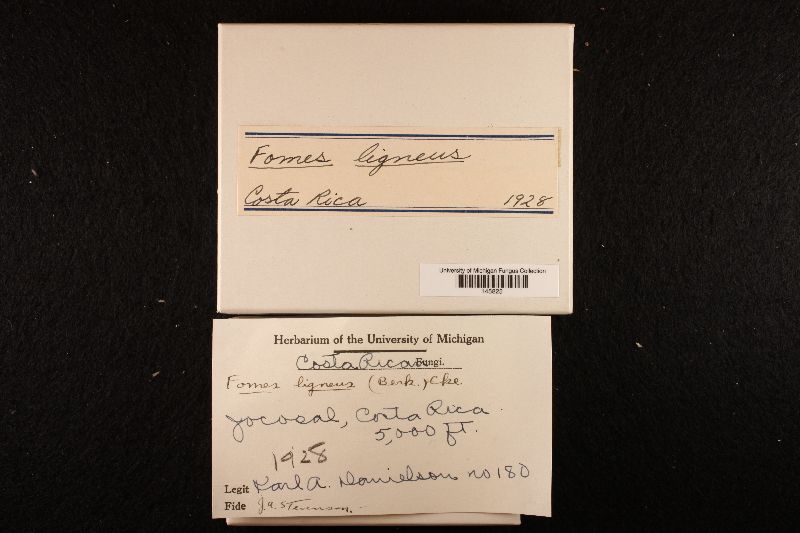 Fomes ligneus
Costa Rica 1928
University of Michigan Fungus Collection
Herbarium of the University of Michigan
Costa Rican Fungi.
Fomes ligneus (Berk.) Cke.
Jocosal, Costa Rica.
5,000 ft.
1928
Legit Karl A. Danielson no 180
Fide J.A. Stevenson.